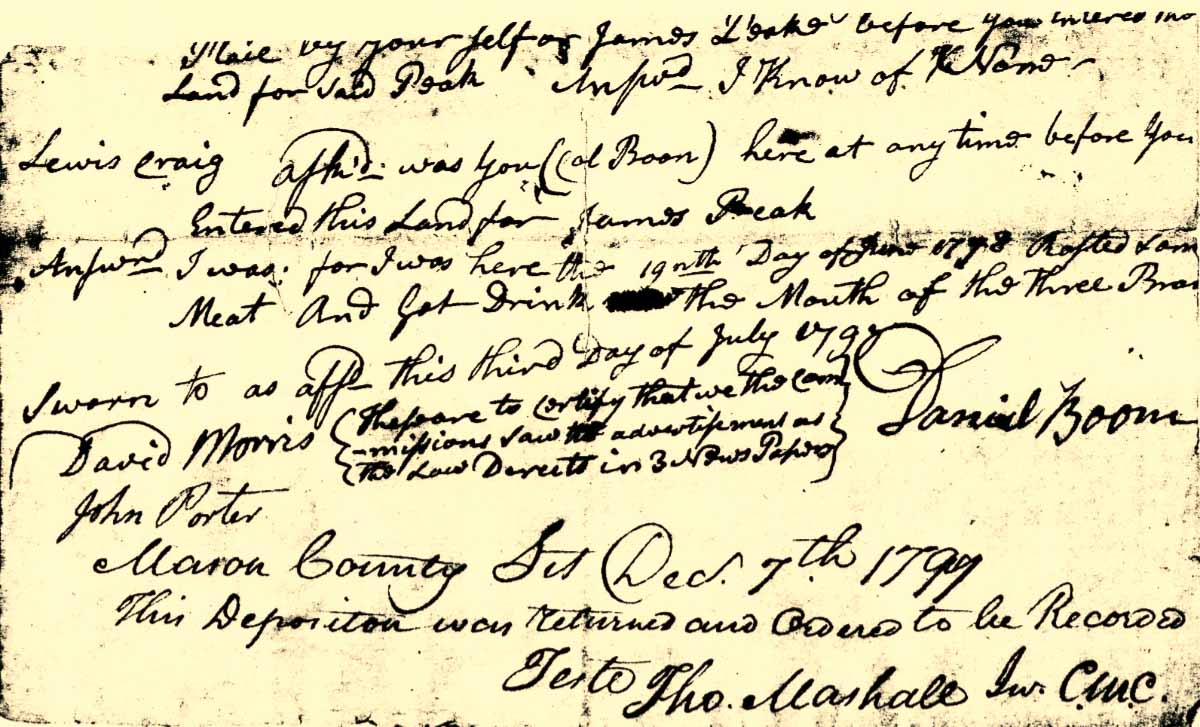 Made by your self or James Peake before you entered into
Land for Said Peak Answd I Know of None
Lewis Craig askd was You (Col Boon) here at any time before You
Entered this Land for James Peak
Answrd I was: for I was here the 19nth Day of June Rosted Som
Meat And Got Drink the Mouth of the three Bran
Sworn to as affd this third Day of July
These are to Certify that we the Com
David Morris -missions Saw the advertisement as Daniel Boon
the Law Directs in 3 News Papers
John Porter
Mason County Sct Dec. 7th 1797
This Depositon was returned and Ordered to be Recorded
Teste Tho. Mashall Jur. C.M.C.